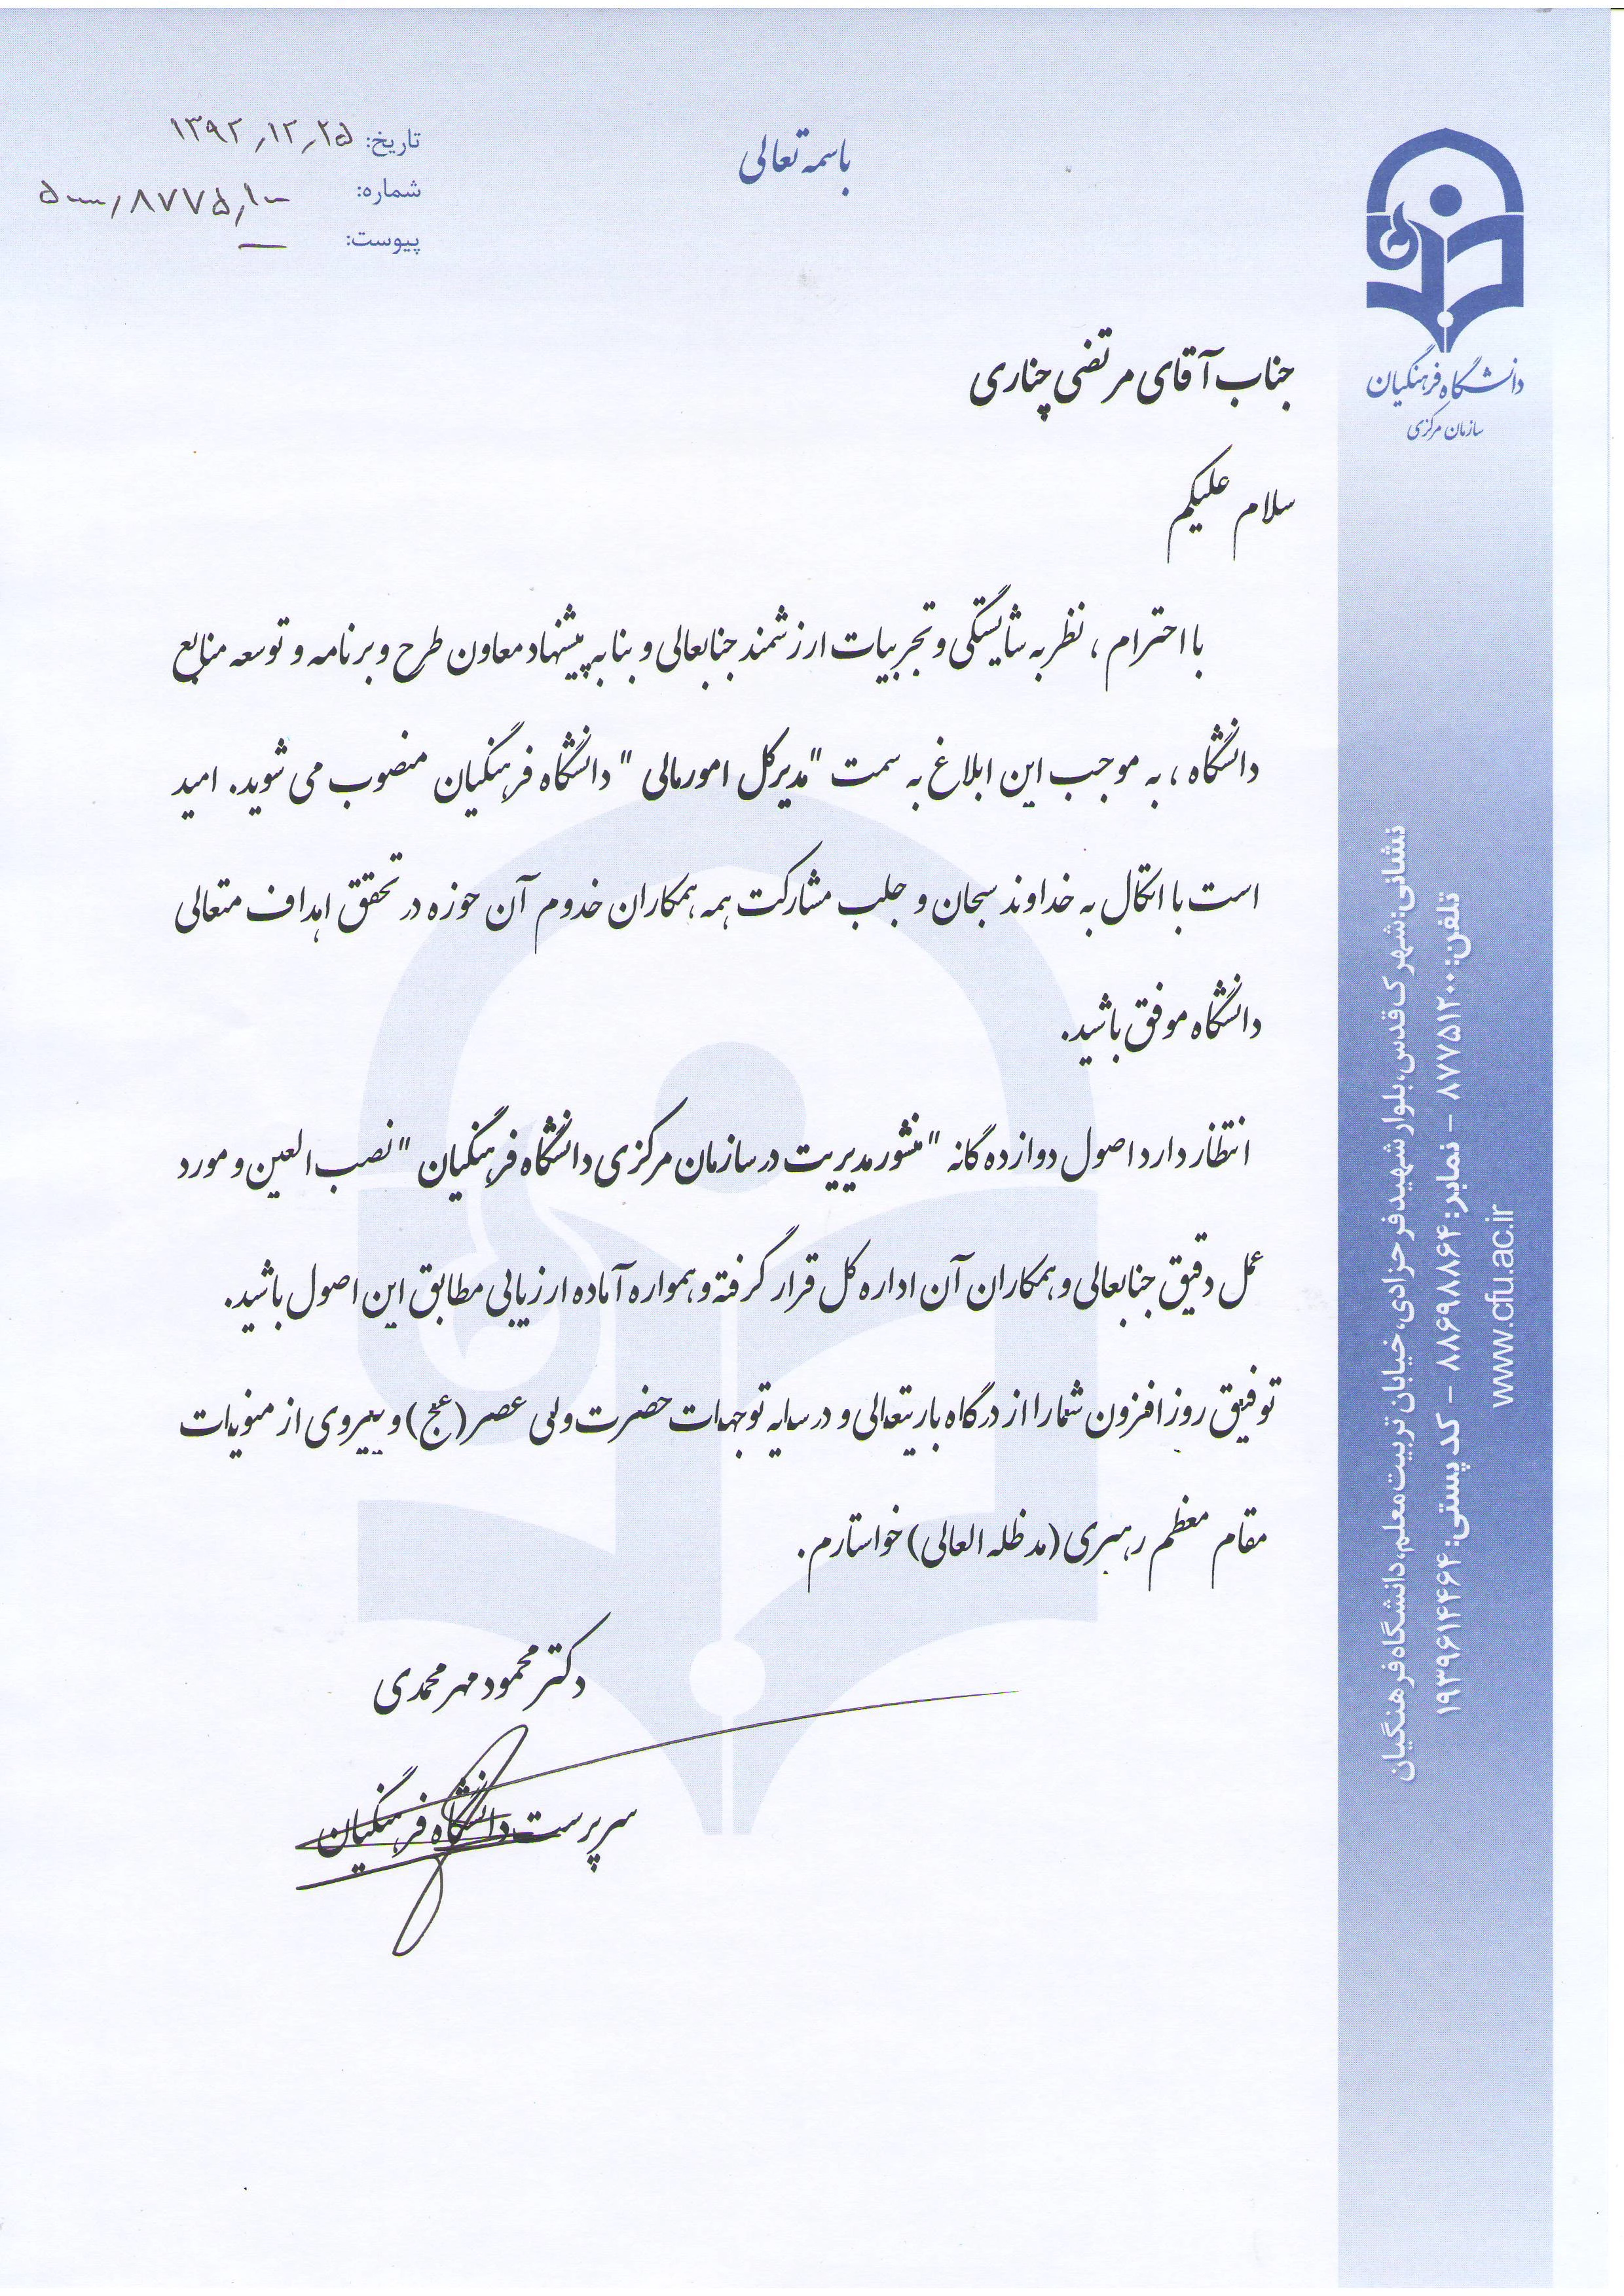 باسمه تعالی
تاریخ: ۱۳۹۲٫۱۲٫۲۵
شماره: ۵۰۰۰۰٫۸۷۷۵٫۱۰۰
پیوست: —
دانشگاه فرهنگیان
سازمان مرکزی
جناب آقای مرتضی چناری
سلام علیکم
با احترام ، نظر به شایستگی و تجربیات ارزشمند جنابعالی و بنا به پیشنهاد معاون طرح و برنامه و توسعه منابع
دانشگاه ، به موجب این ابلاغ به سمت "مدیرکل امورمالی " دانشگاه فرهنگیان منصوب می شوید. امید
است با اتکال به خداوند سبحان و جلب مشارکت همه همکاران خدوم آن حوزه در تحقق اهداف متعالی
دانشگاه موفق باشید.
انتظار دارد اصول دوازده گانه "منشور مدیریت در سازمان مرکزی دانشگاه فرهنگیان " نصب العین و مورد
عمل دقیق جنابعالی و همکاران آن اداره کل قرار گرفته و همواره آماده ارزیابی مطابق این اصول باشید.
توفیق روز افزون شما را از درگاه باریتعالی و در سایه توجهات حضرت ولی عصر (عج) و پیروی از منویات
مقام معظم رهبری (مد ظله العالی) خواستارم.
دکتر محمود مهرمحمدی
سرپرست دانشگاه فرهنگیان
نشانی: شهرک قدس، بلوار شهید فرحزادی، خیابان تربیت معلم، دانشگاه فرهنگیان
تلفن: ۸۷۷۵۱۲۰۰ – نمابر: ۸۸۶۹۸۸۶۴ – کد پستی: ۱۹۳۹۶۱۴۴۶۴
www.cfu.ac.ir